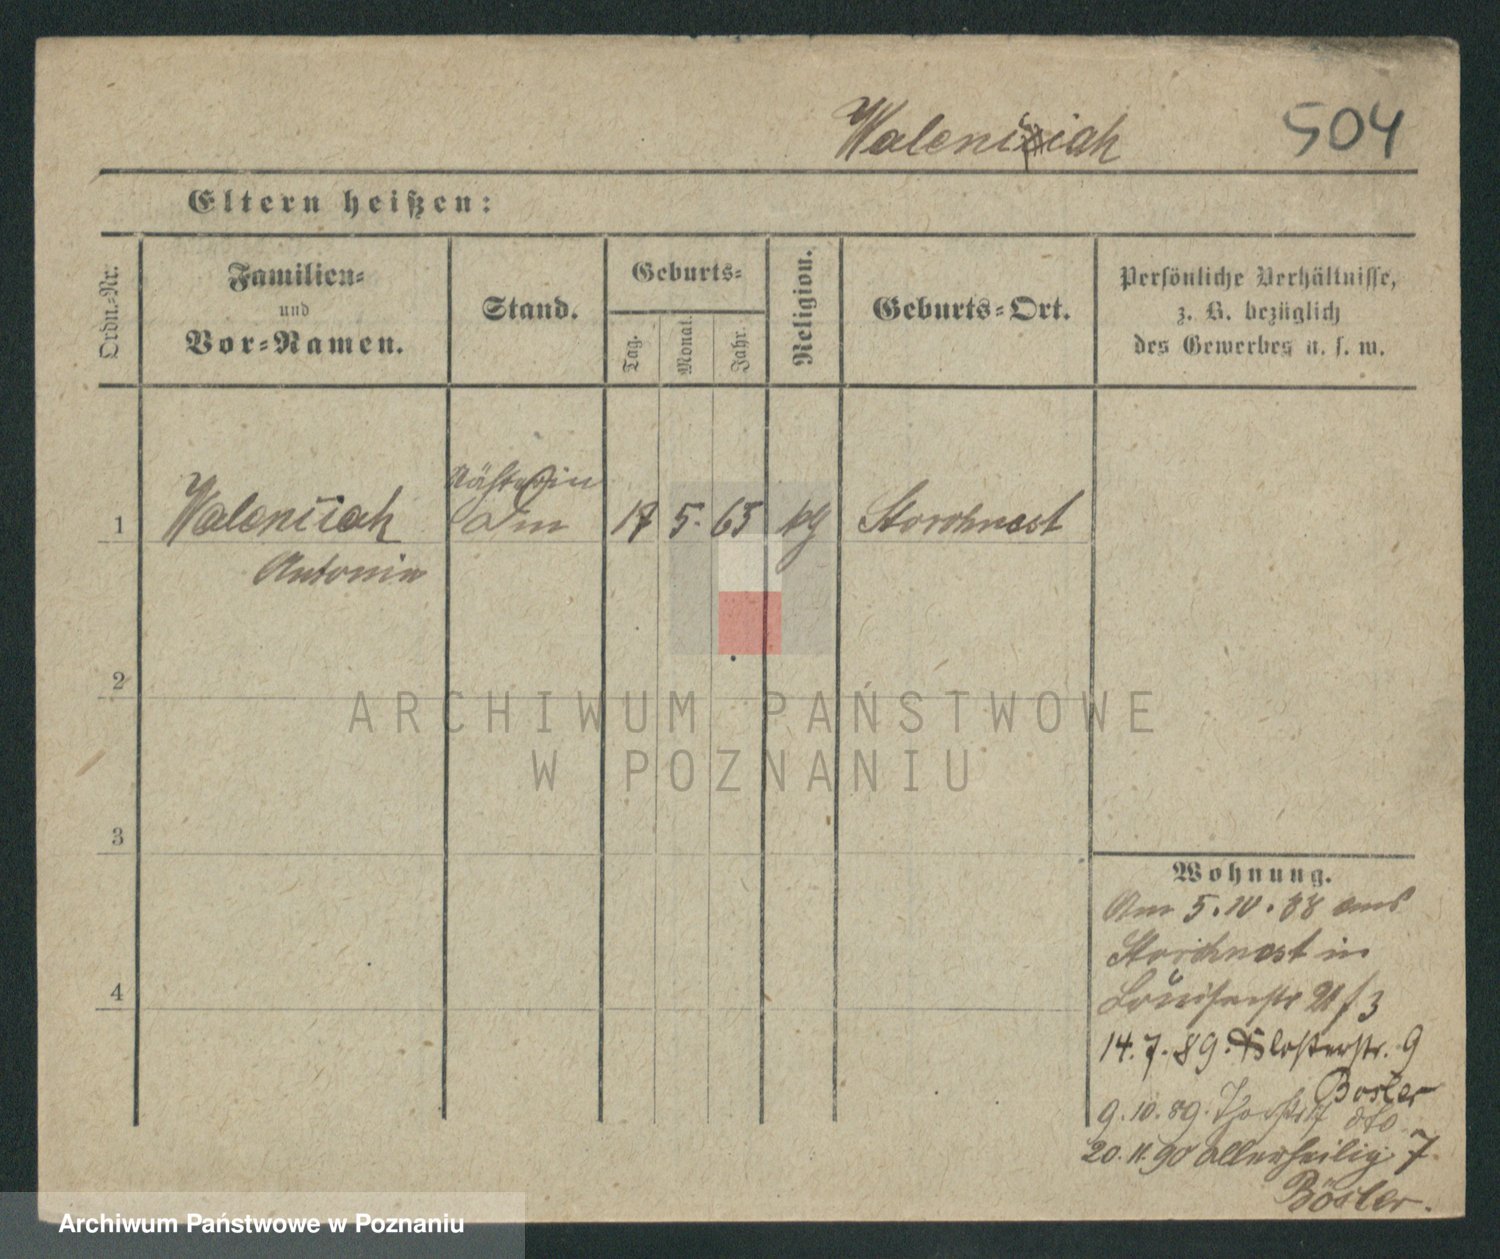 Waleniiah
504
Eltern heißen:
Ordn.-Nr.
Familien-
und
Vor-Namen.
Stand.
Geburts-
Tag.
Monat.
Jahr.
Religion.
Geburts-Ort.
Persönliche Verhältnisse,
z. B. bezüglich
des Gewerbes u. s. w.
1
Waleniiah
Antonia
17
5.
65
kg
Storchnest
2
3
4
Wohnung.
Am 5.10.88 aus
Storchnest in
Louisenstr 21/3
14.7.89. Klosterstr. 9
Bosler
9.10.89. dto
20.11.90 Allerheilig 7
Bösler.
ARCHIWUM PAŃSTWOWE
W POZNANIU
Archiwum Państwowe w Poznaniu